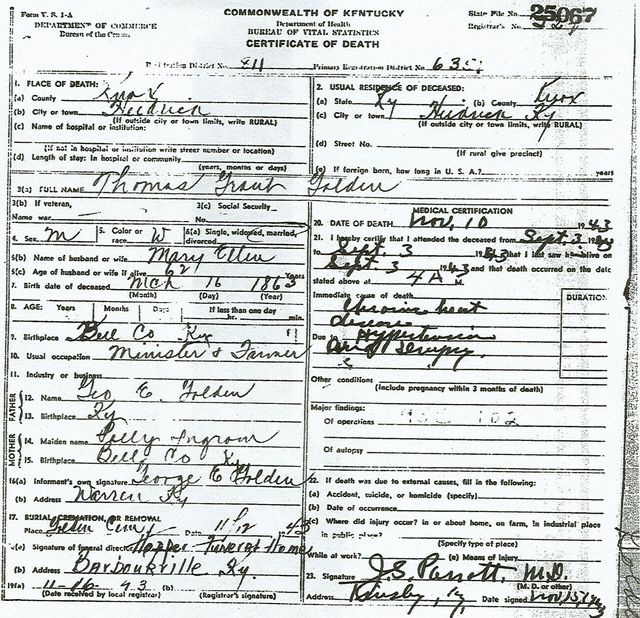 Form V. S. 1-A
DEPARTMENT OF COMMERCE
Bureau of the Census
COMMONWEALTH OF KENTUCKY
Department of Health
BUREAU OF VITAL STATISTICS
CERTIFICATE OF DEATH
State File No. 25067
Registrar's No.
Registration District No. 811 Primary Registration District No. 635
1. PLACE OF DEATH:
(a) County Knox
(b) City or town Heidrick
(If outside city or town limits, write RURAL)
(c) Name of hospital or institution:
(If not in hospital or institution write street number or location)
(d) Length of stay: In hospital or community
(years, months or days)
2. USUAL RESIDENCE OF DECEASED:
(a) State Ky (b) County Knox
(c) City or town Heidrick Ky
(If outside city or town limits, write RURAL)
(d) Street No.
(If rural give precinct)
(e) If foreign born, how long in U. S. A.? years
3(a) FULL NAME Thomas Grant Golden
3(b) If veteran,
Name war
3(c) Social Security
No.
4. Sex M 5. Color or race W 6(a) Single, widowed, married, divorced
6(b) Name of husband or wife Mary Ellen
6(c) Age of husband or wife if alive 62 Years
7. Birth date of deceased Mch 16 1863
(Month) (Day) (Year)
8. AGE: Years Months Days If less than one day
hr. min.
9. Birthplace Bell Co Ky
10. Usual occupation Minister & Farmer
11. Industry or business
FATHER
12. Name Geo E. Golden
13. Birthplace Ky
MOTHER
14. Maiden name Polly Ingram
15. Birthplace Bell Co Ky
16(a) Informant's own signature George E Golden
(b) Address Warren Ky
17. BURIAL, CREMATION, OR REMOVAL
Place Golden Cem Date 11/12 43
(c) Signature of funeral director Hopper Funeral Home
(b) Address Barbourville Ky.
19(a) 11-16-43 (b)
(Date received by local registrar) (Registrar's signature)
MEDICAL CERTIFICATION
20. DATE OF DEATH Nov. 10 1943
21. I hereby certify that I attended the deceased from Sept. 3 1943
to Sept. 3 1943 that I last saw him alive on
Sept. 3 1943 and that death occurred on the date
stated above at 4 A M.
Immediate cause of death
Chronic heart
disease
Due to Hypertension
and Dropsy.
DURATION
Other conditions
(Include pregnancy within 3 months of death)
Major findings:
Of operations
Of autopsy
22. If death was due to external causes, fill in the following:
(a) Accident, suicide, or homicide (specify)
(b) Date of occurrence
(c) Where did injury occur? in or about home, on farm, in industrial place
in public place?
(Specify type of place)
While at work? (e) Means of injury
23. Signature J. S. Parrott, M.D.
(M. D. or other)
Address Ky Date signed Nov 15 1943